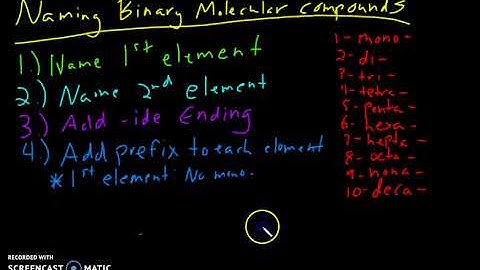 Naming Binary Molecular compounds
1.) Name 1st element
2.) Name 2nd element
3.) Add -ide Ending
4.) Add prefix to each element
* 1st element: No mono.
1 - mono -
2 - di -
3 - tri -
4 - tetra -
5 - penta -
6 - hexa -
7 - hepta -
8 - octa -
9 - nona -
10 - deca -
RECORDED WITH
SCREENCAST MATIC